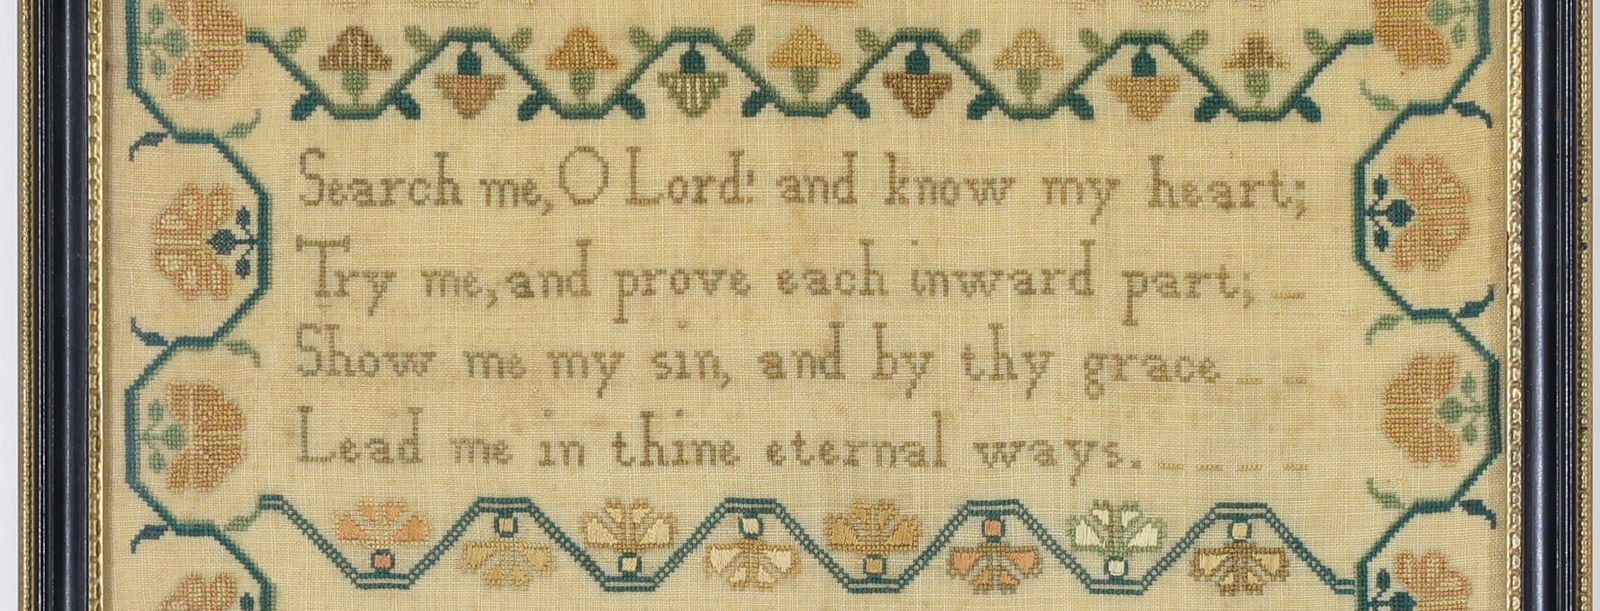 Search me, O Lord! and know my heart;
Try me, and prove each inward part;
Show me my sin, and by thy grace
Lead me in thine eternal ways.